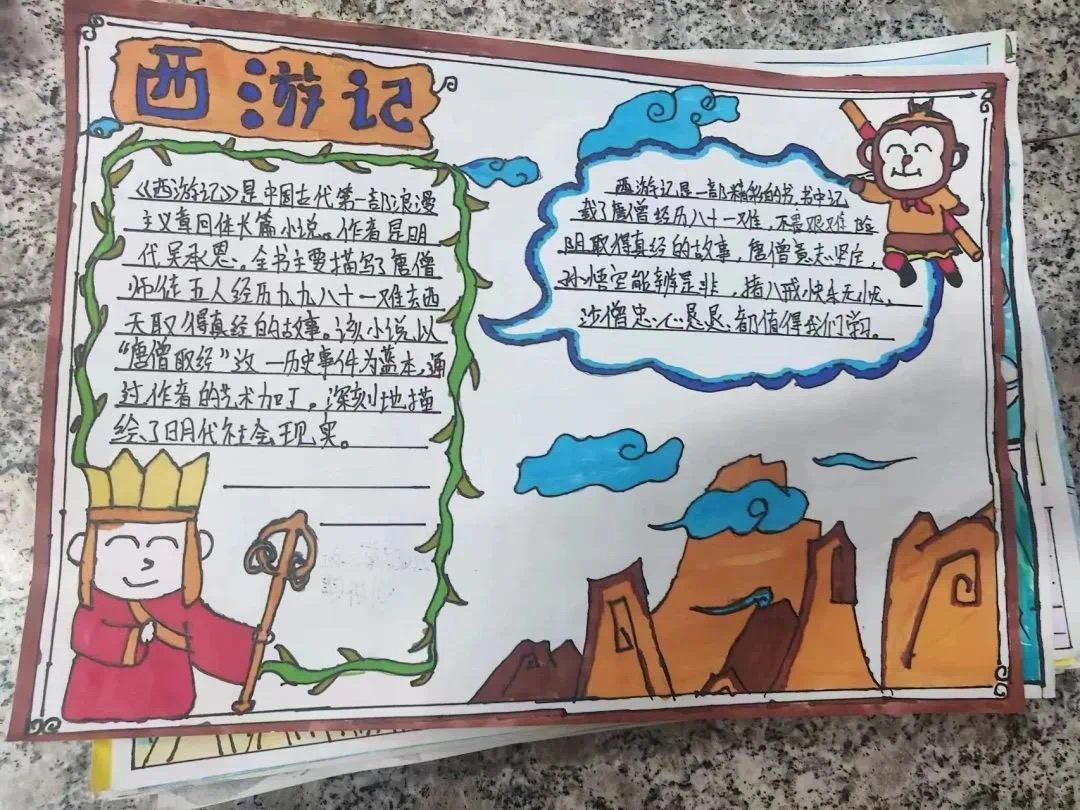 西游记
《西游记》是中国古代第一部浪漫
主义章回体长篇小说。作者是明
代吴承恩。全书主要描写了唐僧
师徒五人经历九九八十一难去西
天取得真经的故事。该小说以
“唐僧取经”这一历史事件为蓝本，通
过作者的艺术加工，深刻地描
绘了明代社会现实。
西游记是一部精彩的书，书中记
载了唐僧经历八十一难，不畏艰难险
阻取得真经的故事，唐僧意志坚定，
孙悟空能辨是非，猪八戒快乐无忧、
沙僧忠心恳恳都值得我们学习。